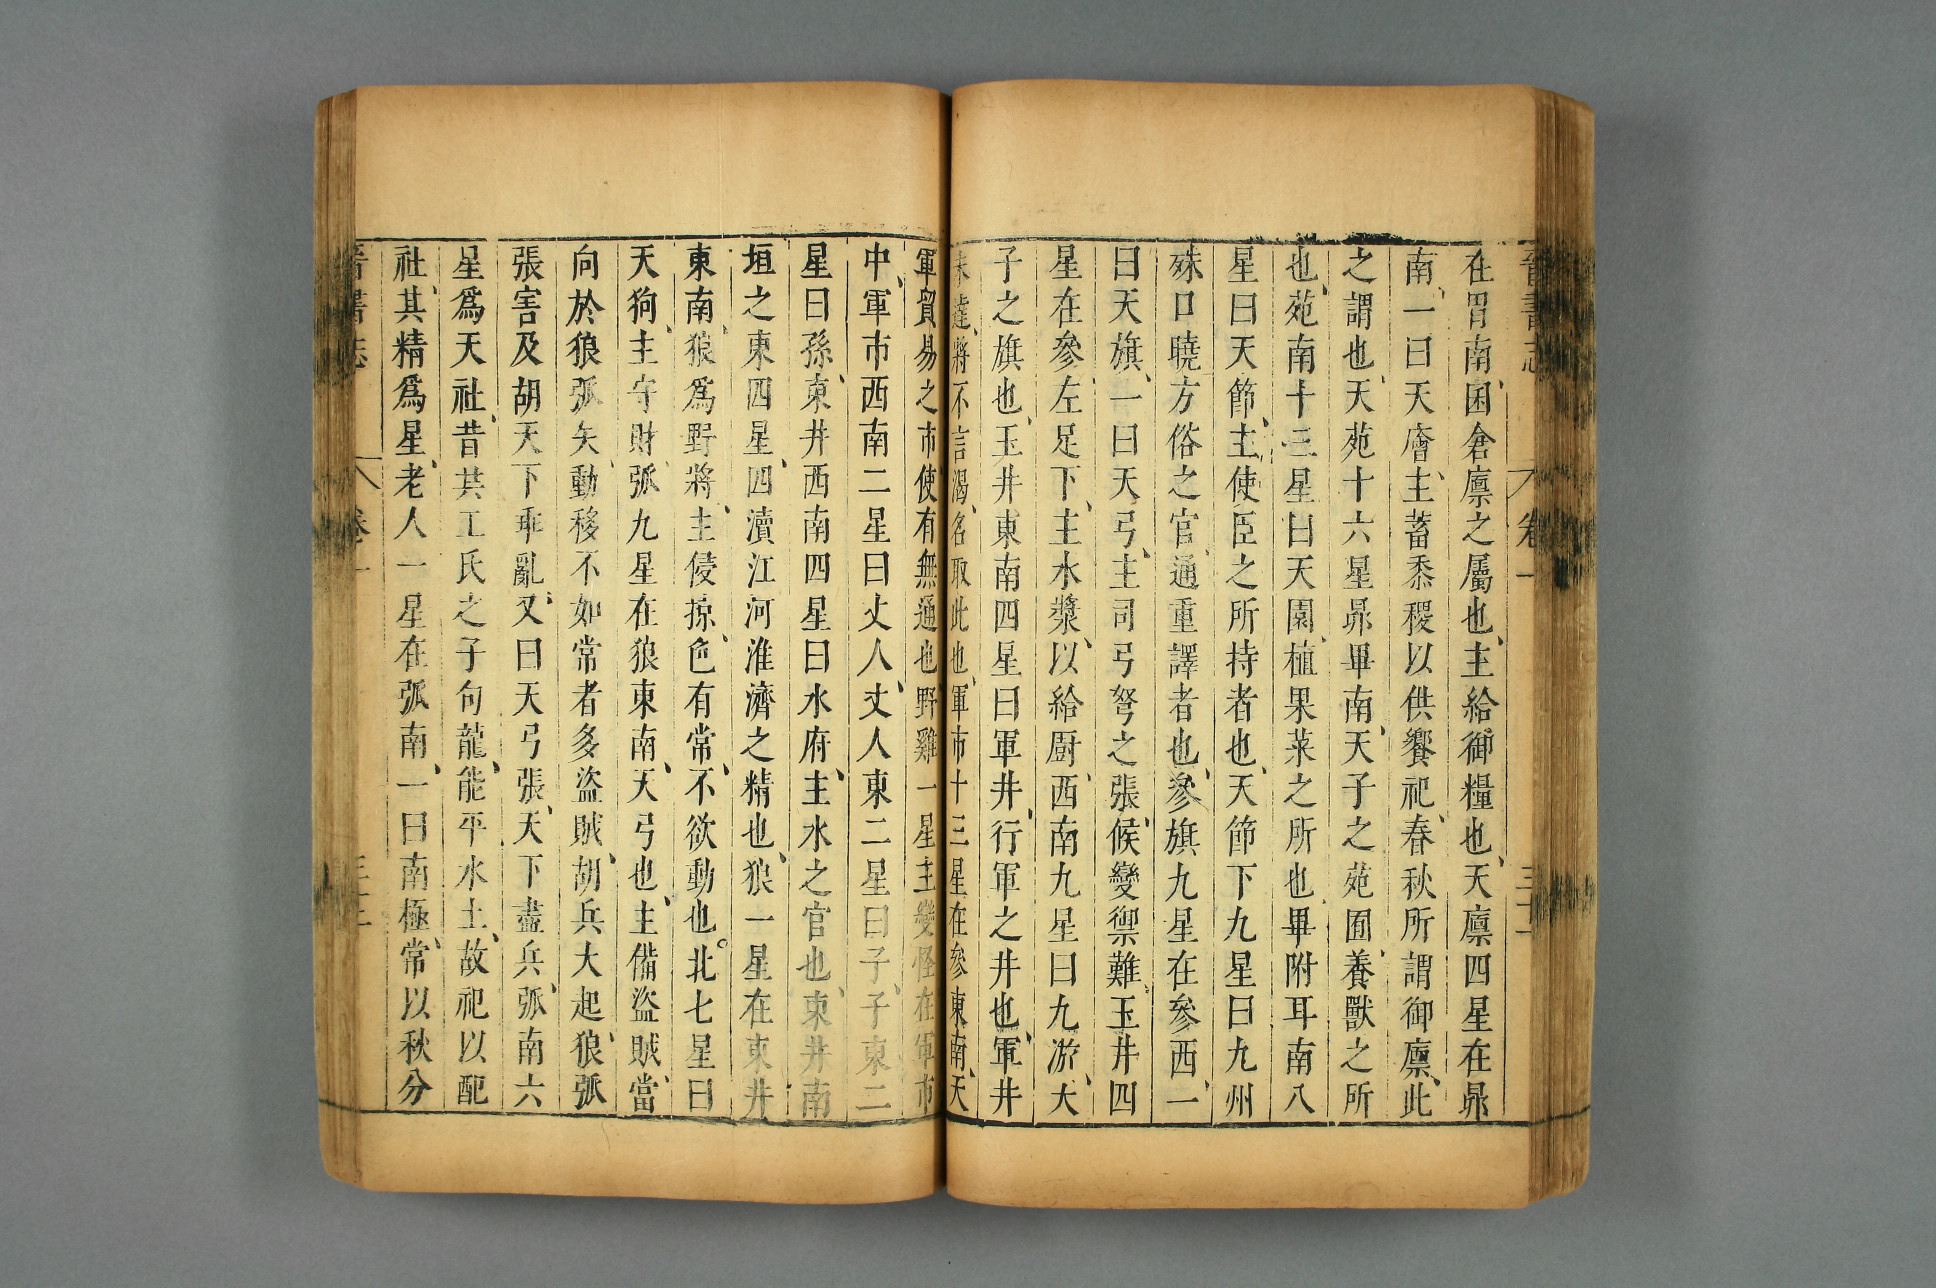 晉書志 卷一 三十一
在胃南囷倉廪之屬也主給御糧也天廪四星在昴
南一曰天廥主蓄黍稷以供饗祀春秋所謂御廪此
之謂也天苑十六星昴畢南天子之苑囿養獸之所
也苑南十三星曰天園植果菜之所也畢附耳南八
星曰天節主使臣之所持者也天節下九星曰九州
殊口曉方俗之官通重譯者也參旗九星在參西一
曰天旗一曰天弓主司弓弩之張候變禦難玉井四
星在參左足下主水漿以給厨西南九星曰九游天
子之旗也玉井東南四星曰軍井行軍之井也軍井
未達將不言渴名取此也軍市十三星在參東南天
軍貿易之市使有無通也野雞一星主變怪在軍市
中軍市西南二星曰丈人丈人東二星曰子子東二
星曰孫東井西南四星曰水府主水之官也東井南
垣之東四星四瀆江河淮濟之精也狼一星在東井
東南狼爲野將主侵掠色有常不欲動也北七星曰
天狗主守財弧九星在狼東南天弓也主備盜賊當
向於狼弧矢動移不如常者多盜賊胡兵大起狼弧
張害及胡天下乖亂又曰天弓張天下盡兵弧南六
星爲天社昔共工氏之子句龍能平水土故祀以配
社其精爲星老人一星在弧南一曰南極常以秋分
晉書志 卷一